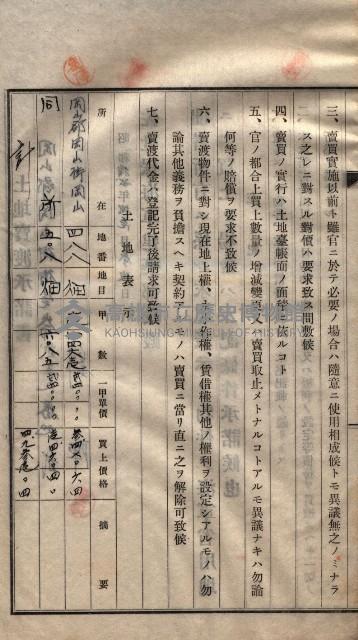 三、賣買實施以前ト雖官ニ於テ必要ノ場合ハ隨意ニ使用相成候トモ異議無之ノミナラ
ス之レニ對スル對價ハ要求致ス間敷候
四、賣買ノ實行ハ土地臺帳面ノ面積ニ依ルコト
五、官ノ都合上買上數量ノ增減變更又ハ賣買取止メトナルコトアルモ異議ナキハ勿論
何等ノ賠償ヲ要求不致候
六、賣渡物件ニ對シ現在地上權、永小作權、賃借權其他ノ權利ヲ設定シアルモノハ勿
論其他義務ヲ負擔スヘキ契約アルモノハ賣買ニ當リ直ニ之ヲ解除可致候
七、賣渡代金ハ登記完了後請求可致候
土地表示
所在 地番 地目 甲數 一甲單價 買上價格 摘要
岡山郡岡山街岡山 四八八 畑
同 所 五〇八 畑
計
高雄市立歷史博物館
KAOHSIUNG MUSEUM OF HISTORY